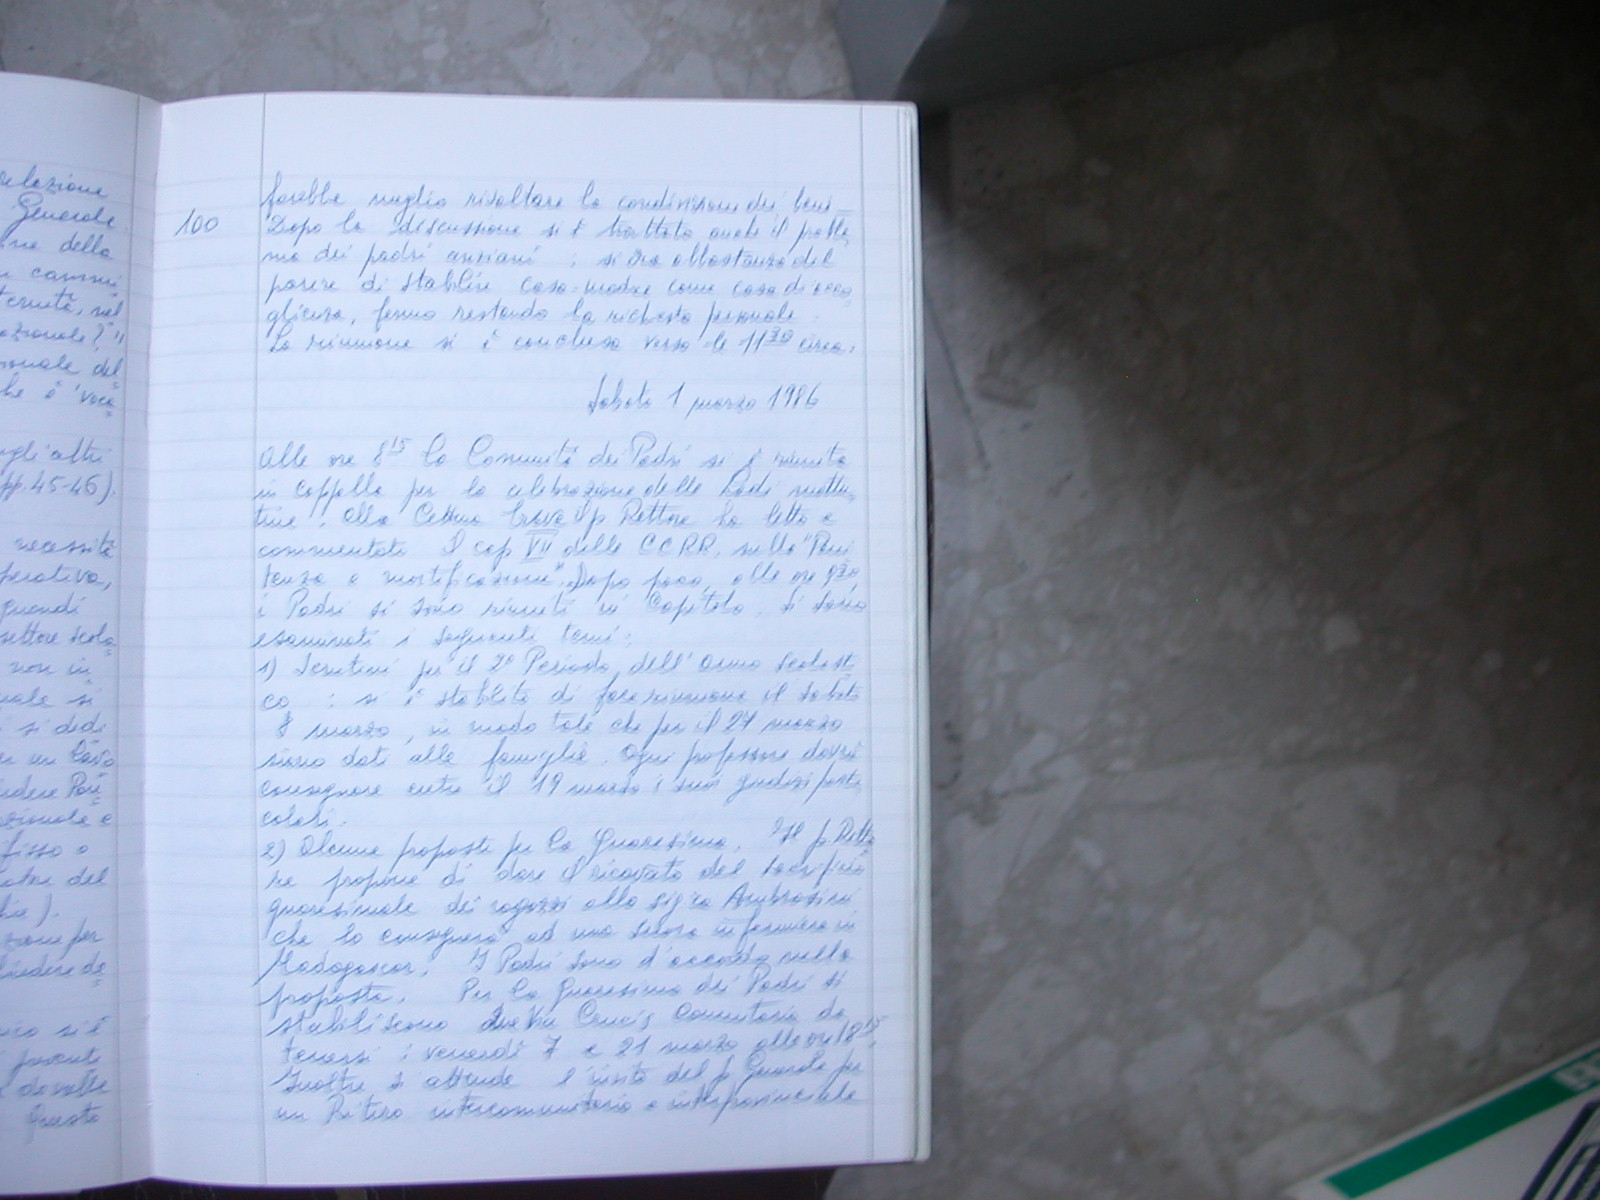 elazione
Generale.
ne della
cammi
ternità, nel
azionale?"
ionale del
he è "voca
gli altri
pp. 45-46).
necessità
perativa,
quindi
settore scola
non in
uale si
si dedi
un
udere
azionale e
fisso o
del
zione per
chiedere de
si è
giovanti
Questo
100
farebbe meglio risaltare la condivisione dei beni
Dopo la discussione si è trattato anche il proble
ma dei padri anziani : si era abbastanza del
parere di stabilire casa-madre come casa di acco
glienza, fermo restando la richiesta personale.
La riunione si è conclusa verso le 11 30 circa.
Sabato 1 marzo 1986
Alle ore 8 15 la Comunità dei Padri si è riunita
in cappella per la celebrazione delle Lodi mattu
tine. Alla Lettura breve il p. Rettore ha letto e
commentato il cap VII delle CCRR. sulla "Peni
tenza e mortificazione". Dopo poco, alle ore 9 30
i Padri si sono riuniti in Capitolo. Si sono
esaminati i seguenti temi:
1) Scrutini per il 2° Periodo dell'Anno Scolasti
co : si è stabilito di fare riunione il Sabato
8 marzo, in modo tale che per il 24 marzo
siano dati alle famiglie. Ogni professore dovrà
consegnare entro il 19 marzo i suoi giudizi parti
colari.
2) Alcune proposte per la Quaresima. Il p. Retto
re propone di dare il ricavato del sacrificio
quaresimale dei ragazzi alla sig.ra Ambrosini
che lo consegnerà ad una suora infermiera in
Madagascar. I Padri sono d'accordo nella
proposta. Per la Quaresima dei Padri si
stabiliscono due Via Crucis comunitarie da
tenersi i venerdì 7 e 21 marzo alle ore 18 15.
Inoltre si attende l'invito del p. per
un Ritiro intercomunitario e interprovinciale